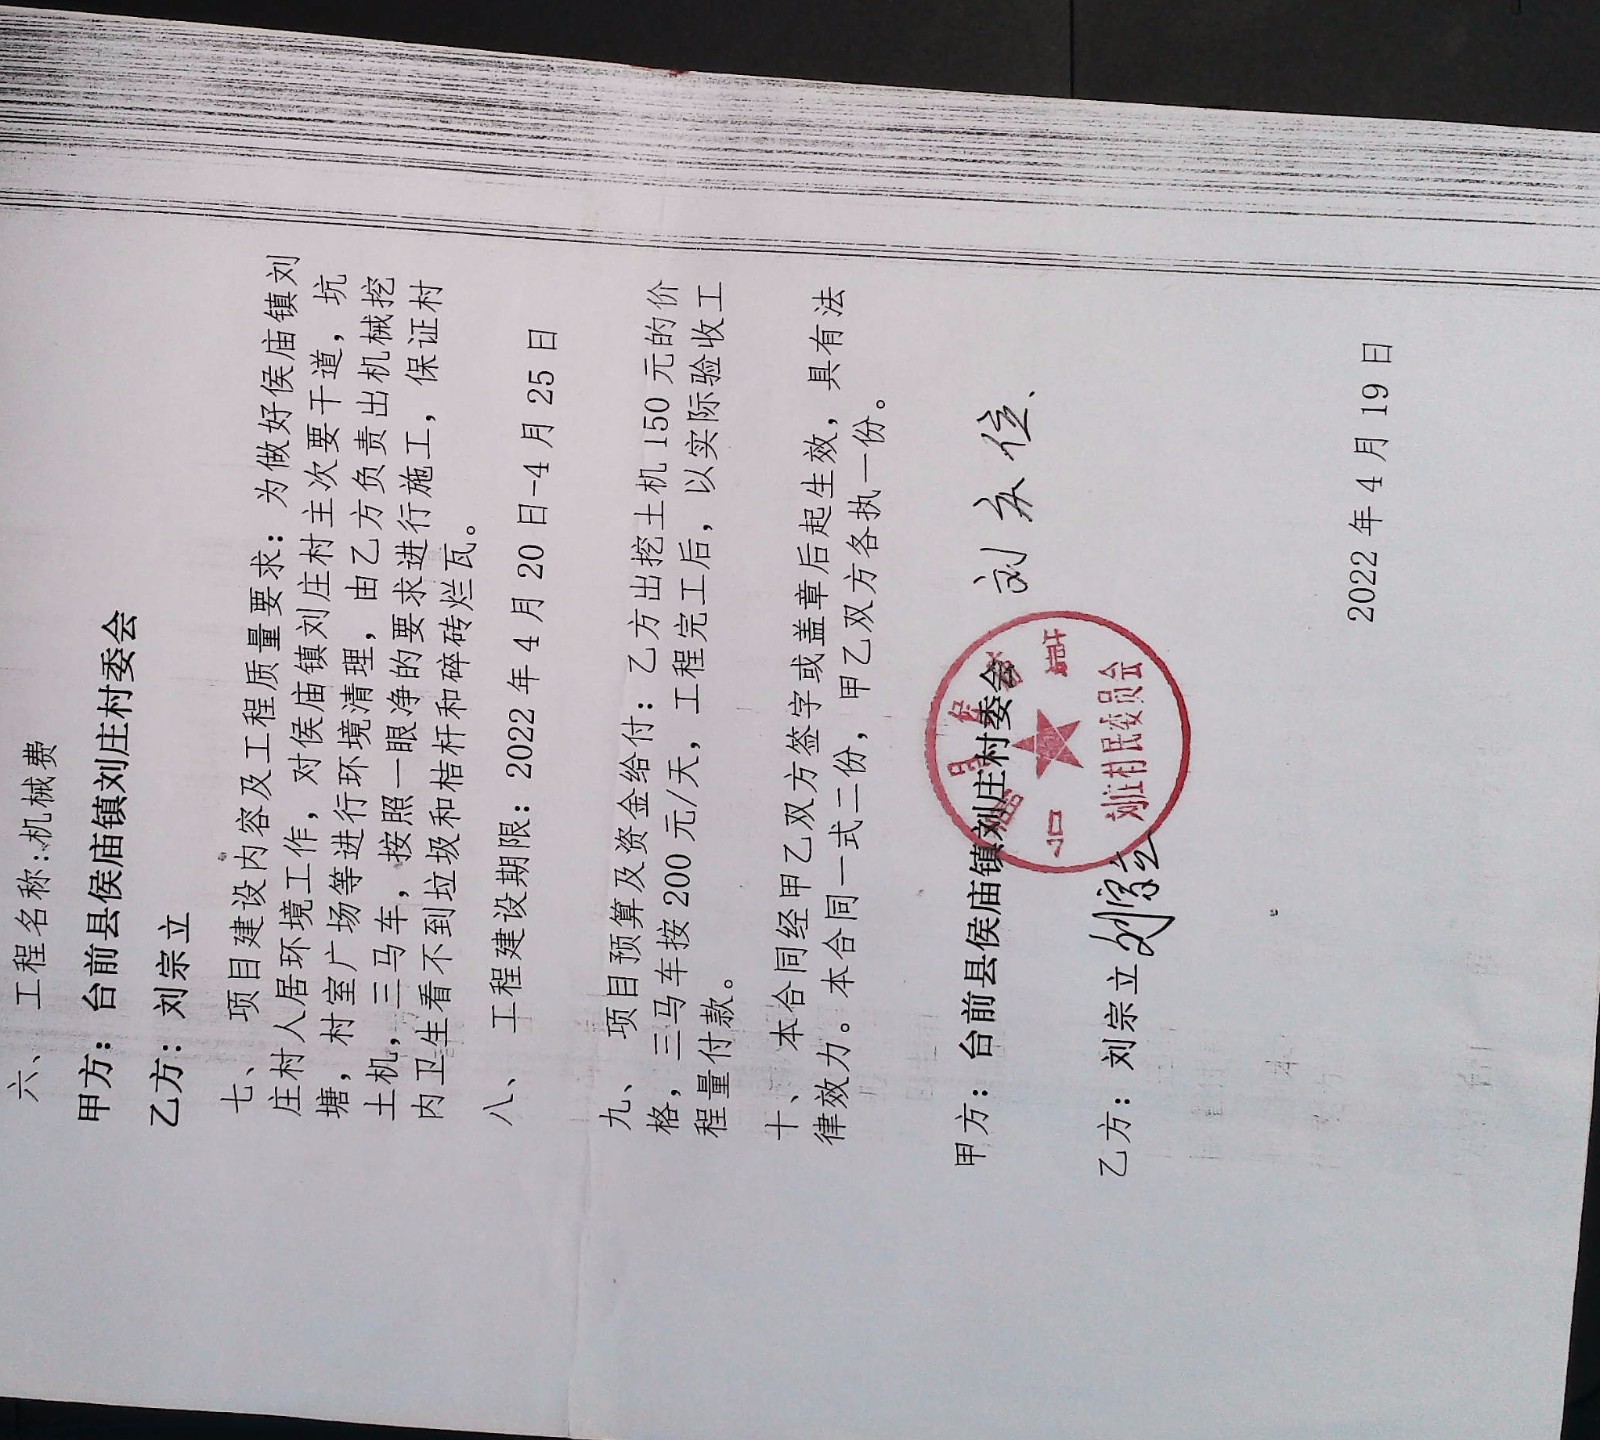 六、 工程名称:机械费
甲方：台前县侯庙镇刘庄村委会
乙方：刘宗立
七、 项目建设内容及工程质量要求：为做好侯庙镇刘
庄村人居环境工作，对侯庙镇刘庄村主次要干道，坑
塘，村室广场等进行环境清理，由乙方负责出机械挖
土机，三马车，按照一眼净的要求进行施工，保证村
内卫生看不到垃圾和桔杆和碎砖烂瓦。
八、 工程建设期限：2022 年 4 月 20 日-4 月 25 日
九、 项目预算及资金给付：乙方出挖土机 150 元的价
格，三马车按 200 元/天，工程完工后，以实际验收工
程量付款。
十、 本合同经甲乙双方签字或盖章后起生效，具有法
律效力。本合同一式二份，甲乙双方各执一份。
甲方：台前县侯庙镇刘庄村委会 刘
刘庄村民委员会
乙方：刘宗立 刘宗立
2022 年 4 月 19 日